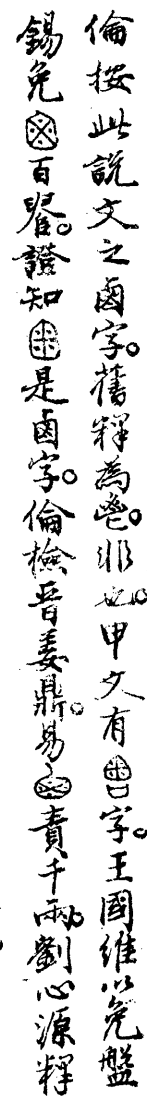 倫按此說文之鹵字。舊釋為鬯。非也。甲文有字。王國維以免盤
錫免百𤲞。證知是鹵字。倫檢晉姜鼎。易責千兩。劉心源釋